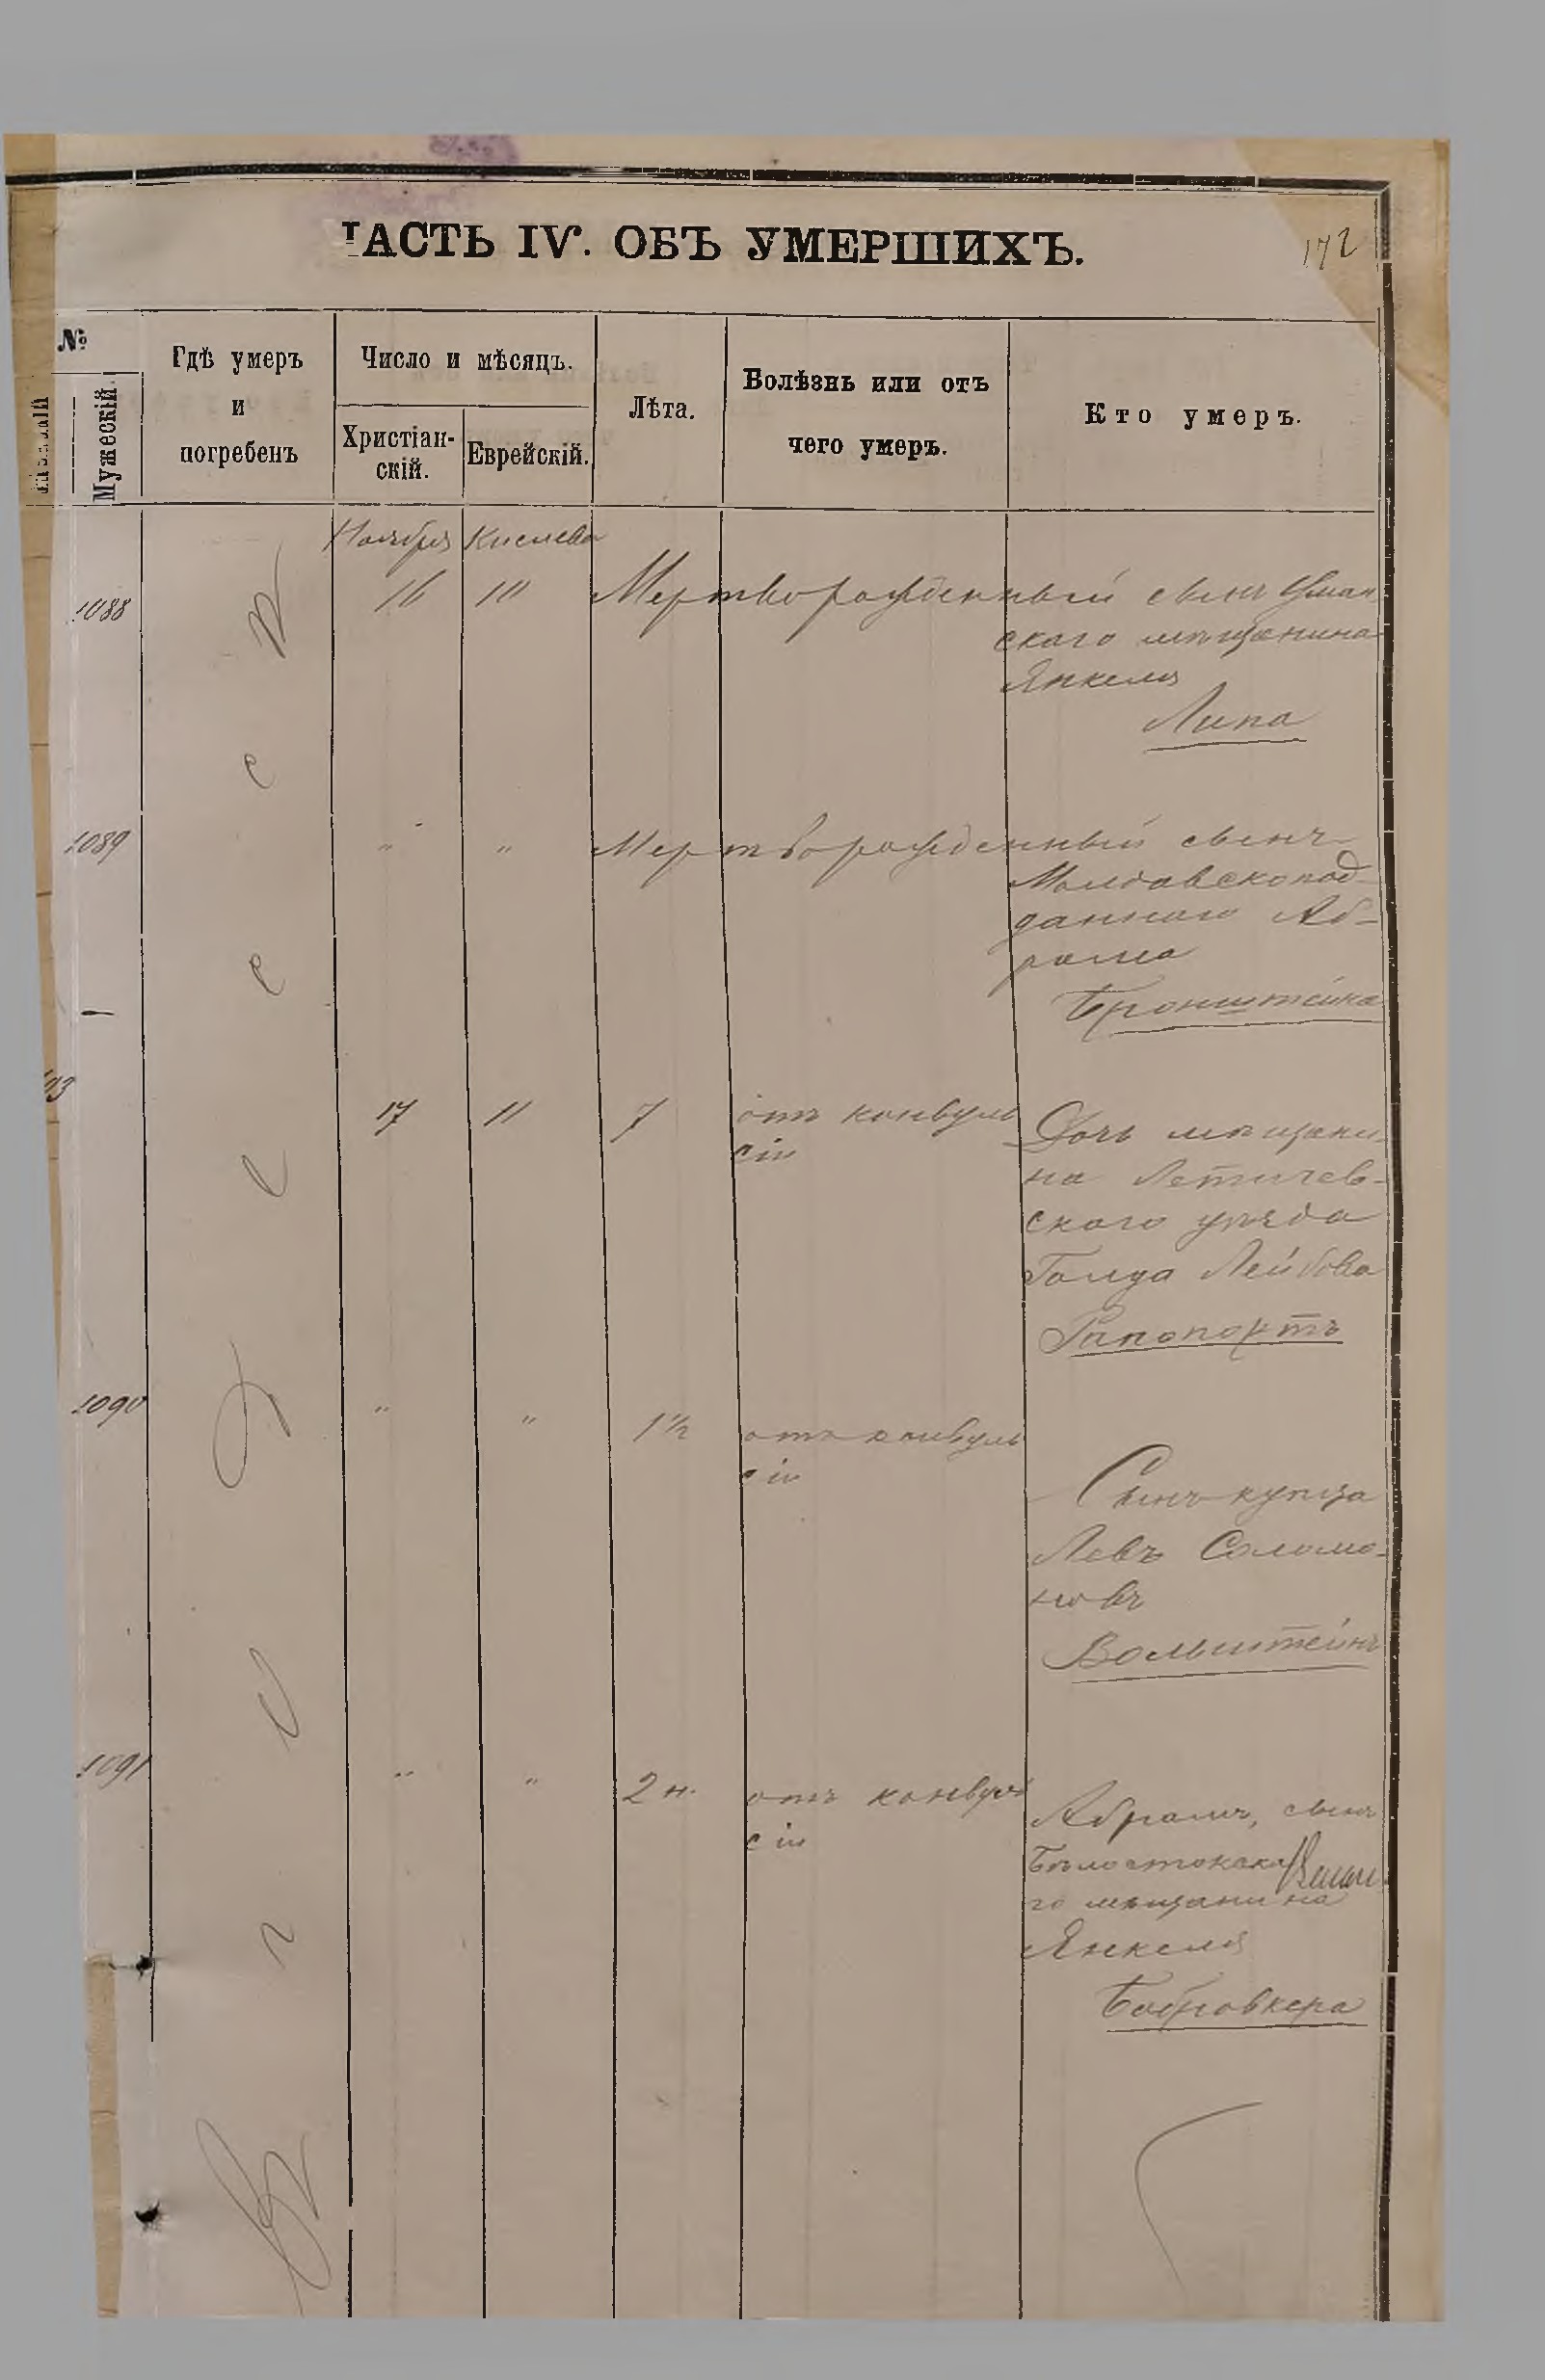 ЧАСТЬ IV. ОБЪ УМЕРШИХЪ.
172
№
Мужескій.
Гдѣ умеръ
и
погребенъ
Число и мѣсяцъ.
Христіан-
скій.
Еврейскій.
Лѣта.
Болѣзнь или отъ
чего умеръ.
Кто умеръ.
Въ г. Одессѣ
Ноября Кислева
1088 16 10 Мертворожденный сынъ Уман
скаго мѣщанина
Янкеля
Липа
1089 " " Мертворожденный сынъ
Молдавскопод-
даннаго Аб-
рама
Бронштейна
17 11 7 отъ конвуль
сіи
Дочь мѣщани-
на Летичев-
скаго уѣзда
Голда Лейбова
Рапопортъ
1090 " " 1½ отъ конвуль
сіи
Сынъ купца
Левъ Соломо-
новъ
Вольштейнъ
1091 " " 2 н. отъ конвуль
сіи
Абрамъ, сынъ
Бѣлостокска
го мѣщанина
Янкеля